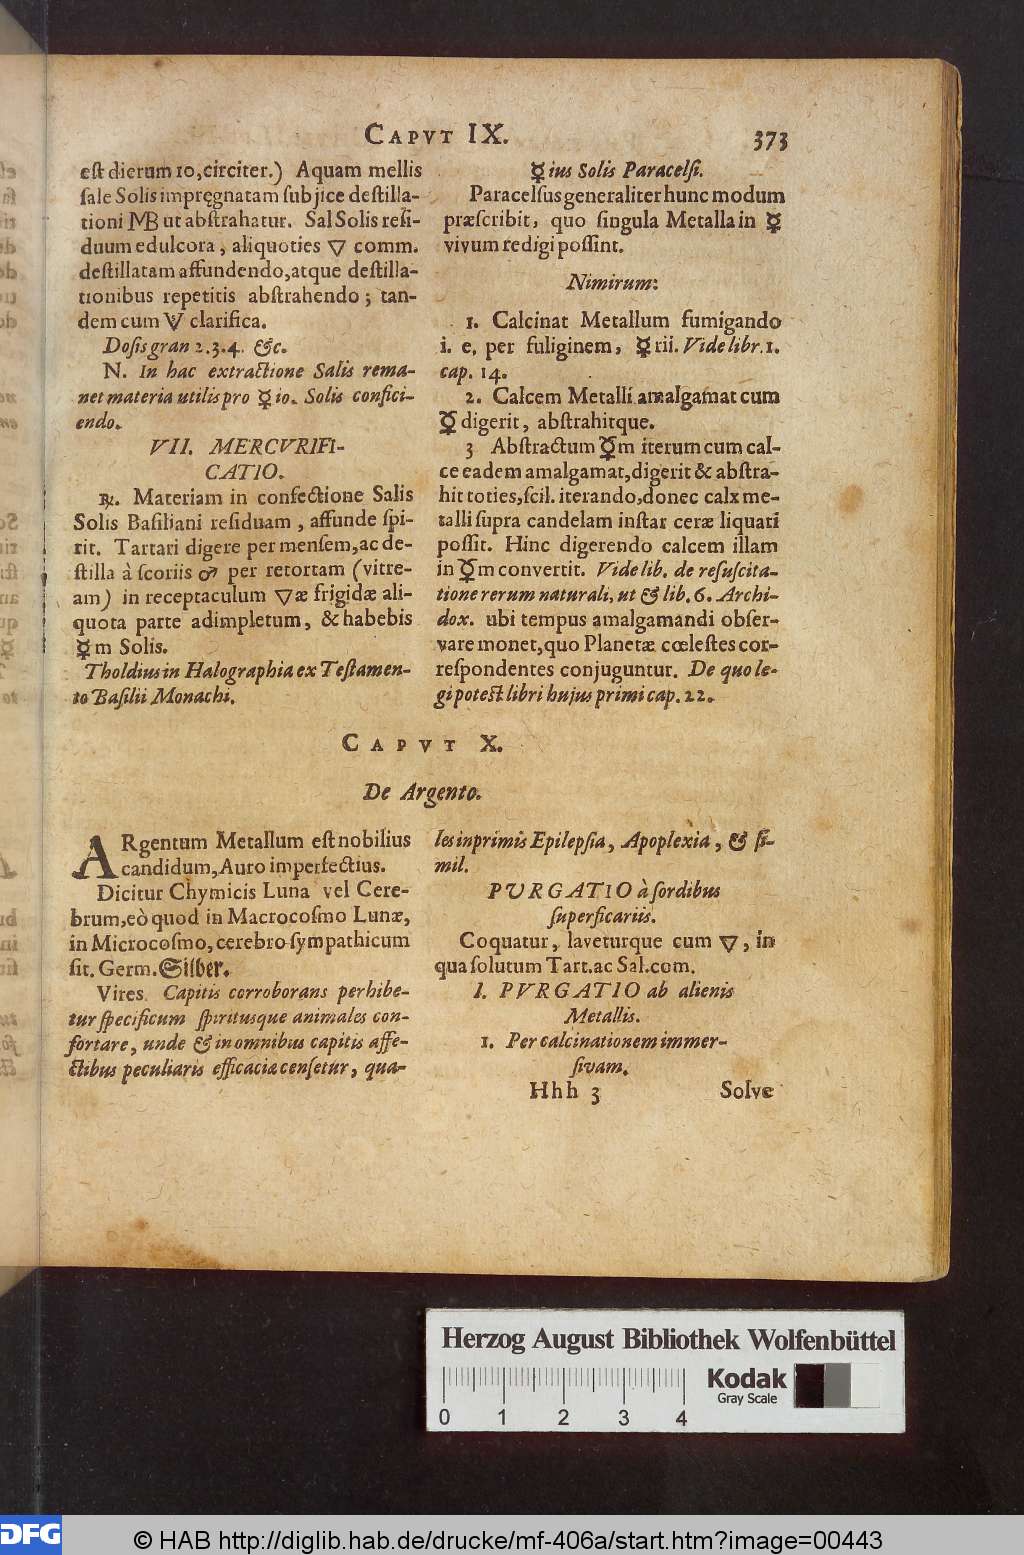 CAPVT IX. 373
est dierum 10, circiter.) Aquam mellis
sale Solis impręgnatam subjice destilla-
tioni MB ut abstrahatur. Sal Solis resi-
duum edulcora, aliquoties 🜄 comm.
destillatam affundendo, atque destilla-
tionibus repetitis abstrahendo; tan-
dem cum clarifica.
Dosis gran 2. 3. 4. &c.
N. In hac extractione Salis rema-
net materia utilis pro ☿io. Solis confici-
endo.
VII. MERCVRIFI-
CATIO.
℞. Materiam in confectione Salis
Solis Basiliani residuam, affunde spi-
rit. Tartari digere per mensem, ac de-
stilla à scoriis ♂ per retortam (vitre-
am) in receptaculum 🜄æ frigidæ ali-
quota parte adimpletum, & habebis
☿m Solis.
Tholdius in Halographia ex Testamen-
to Basilii Monachi.
☿ius Solis Paracelsi.
Paracelsus generaliter hunc modum
præscribit, quo singula Metalla in ☿
vivum redigi possint.
Nimirum:
1. Calcinat Metallum fumigando
i. e. per fuliginem, ☿rii. Vide libr. 1.
cap. 14.
2. Calcem Metalli amalgamat cum
☿ digerit, abstrahitque.
3 Abstractum ☿m iterum cum cal-
ce eadem amalgamat, digerit & abstra-
hit toties, scil. iterando, donec calx me-
talli supra candelam instar ceræ liquati
possit. Hinc digerendo calcem illam
in ☿m convertit. Vide lib. de resuscita-
tione rerum naturali, ut & lib. 6. Archi-
dox. ubi tempus amalgamandi obser-
vare monet, quo Planetæ cœlestes cor-
respondentes conjuguntur. De quo le-
gi potest libri hujus primi cap. 22.
CAPVT X.
De Argento.
ARgentum Metallum est nobilius
candidum, Auro imperfectius.
Dicitur Chymicis Luna vel Cere-
brum, eò quod in Macrocosmo Lunæ,
in Microcosmo, cerebro sympathicum
sit. Germ. Silber.
Vires. Capitis corroborans perhibe-
tur specificum spiritusque animales con-
fortare, unde & in omnibus capitis affe-
ctibus peculiaris efficacia censetur, qua-
les inprimis Epilepsia, Apoplexia, & si-
mil.
PVRGATIO à sordibus
superficariis.
Coquatur, laveturque cum 🜄, in
qua solutum Tart. ac Sal. com.
I. PVRGATIO ab alienis
Metallis.
1. Per calcinationem immer-
sivam.
Hhh 3 Solve
Herzog August Bibliothek Wolfenbüttel
Kodak
Gray Scale
0 1 2 3 4
DFG
© HAB http://diglib.hab.de/drucke/mf-406a/start.htm?image=00443